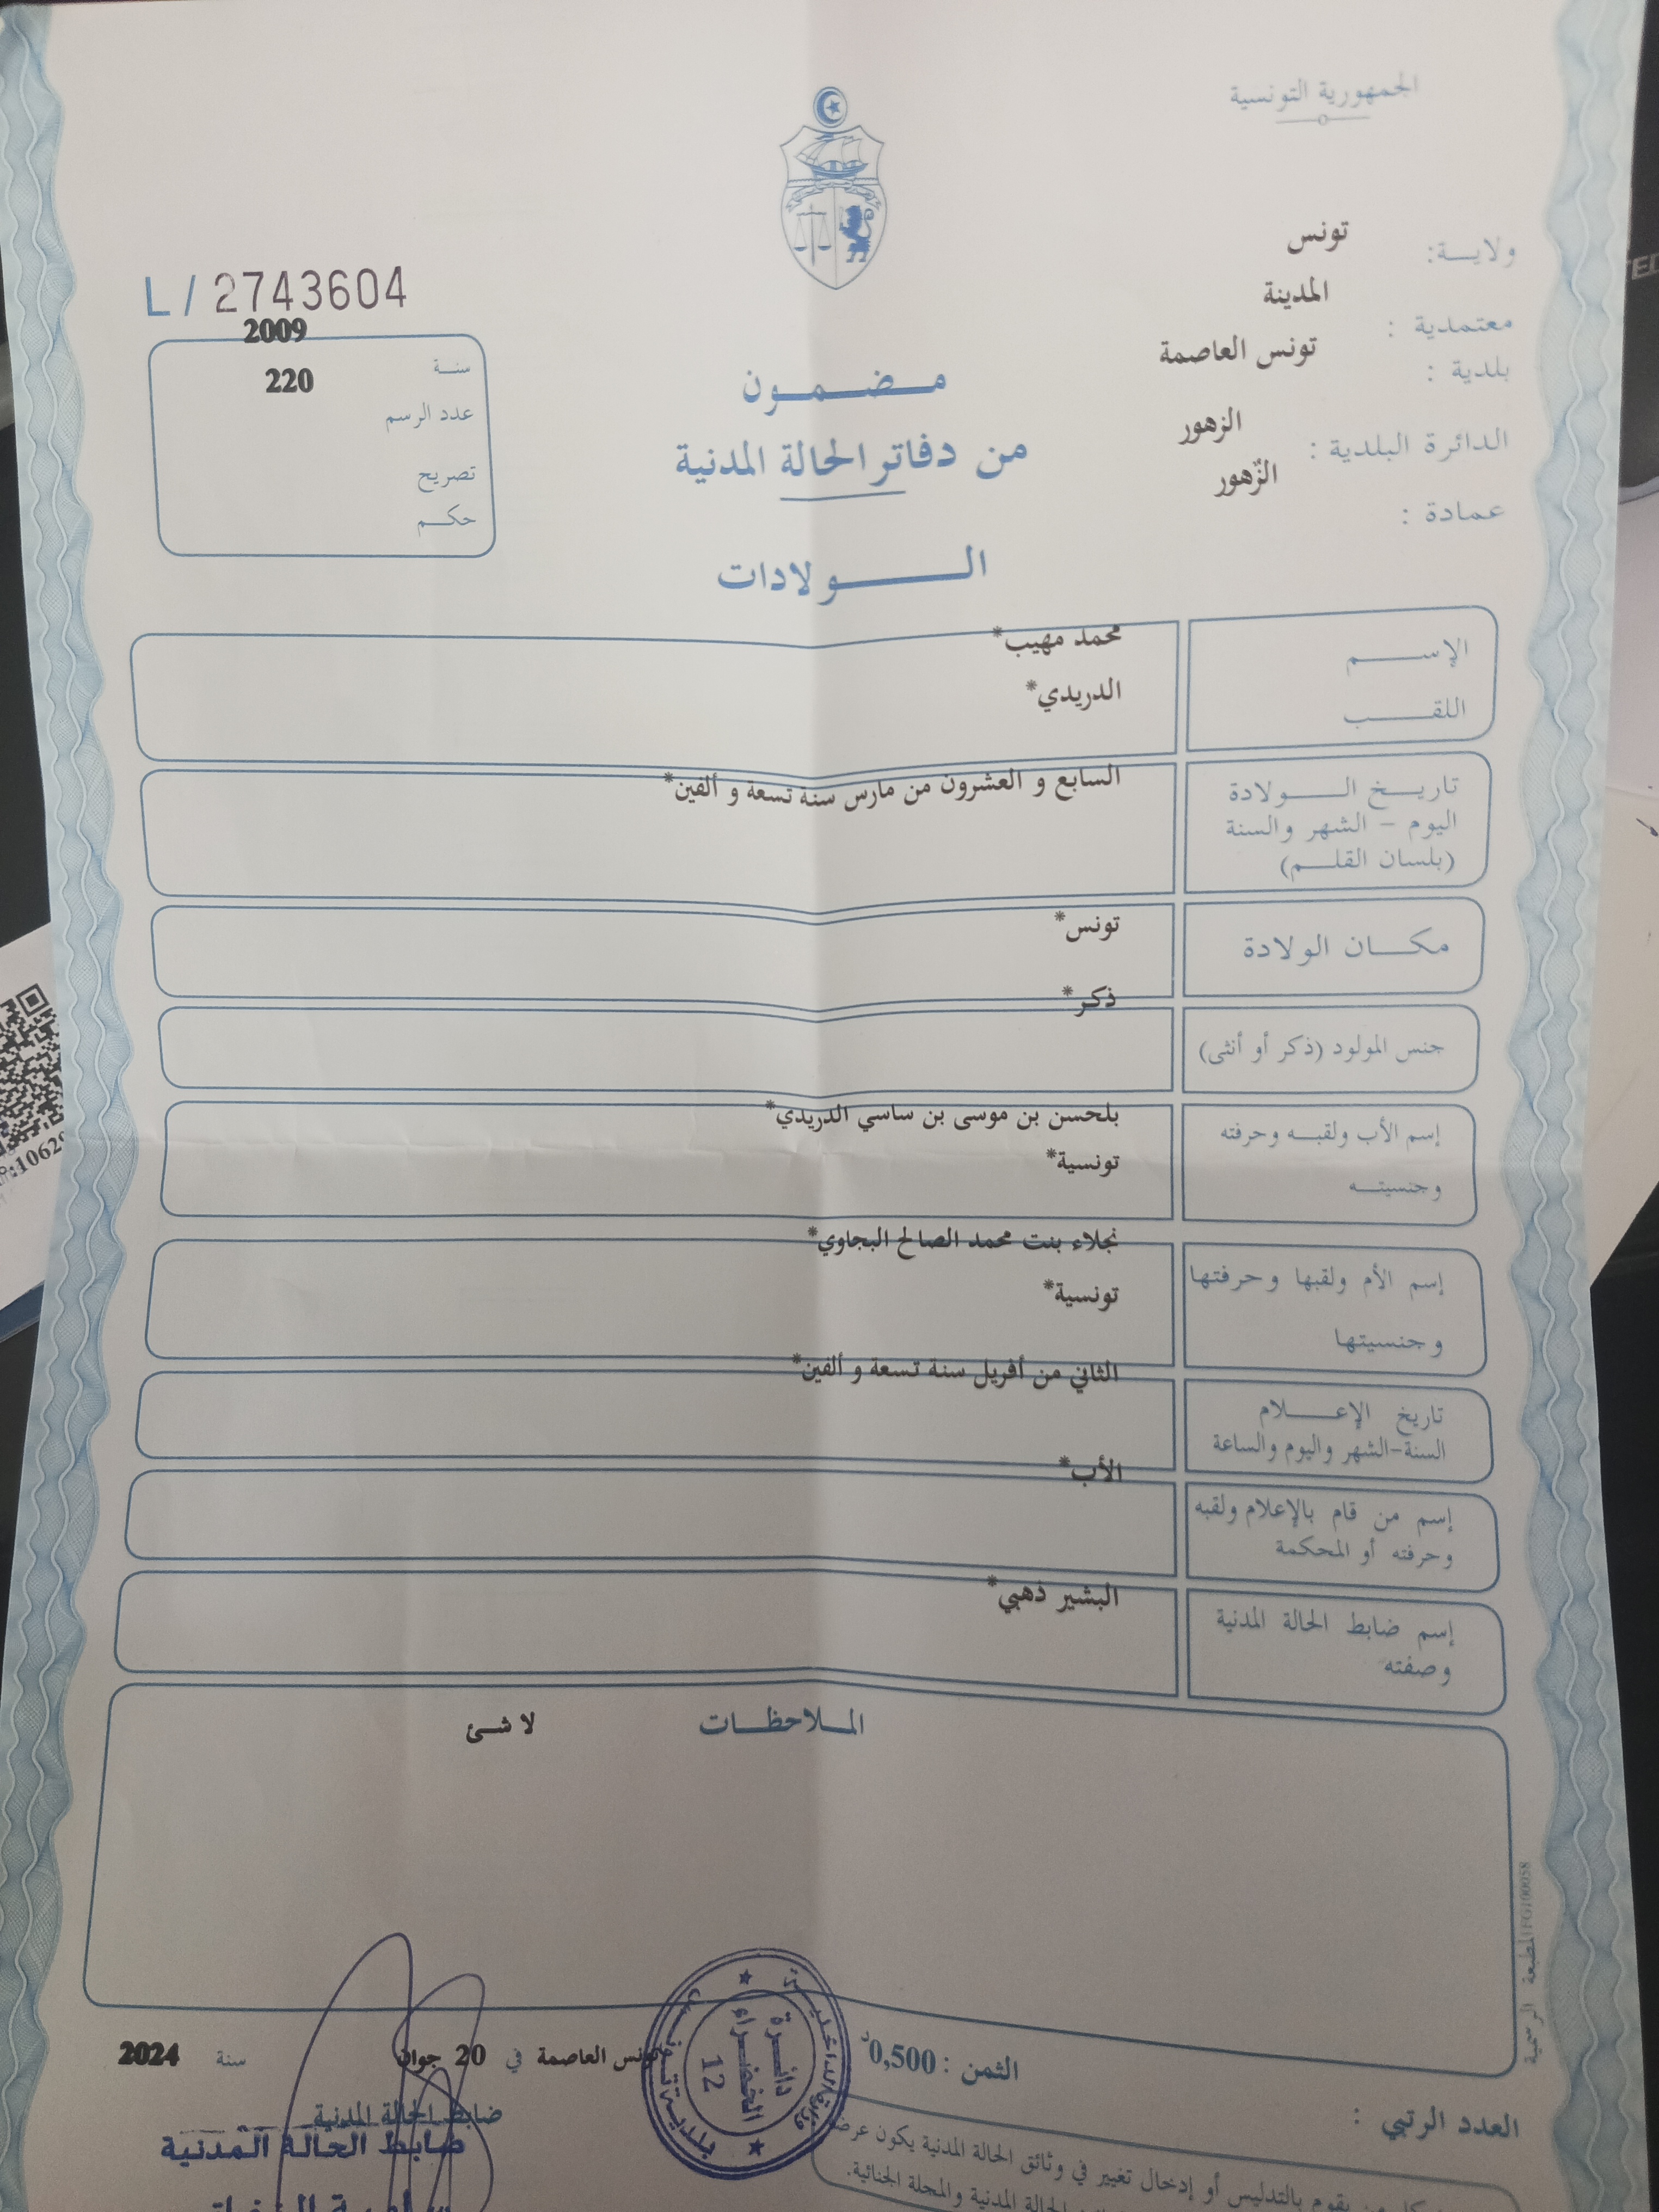 الجمهورية التونسية
ولايـــة: تونس
معتمدية : المدينة
بلدية : تونس العاصمة
الدائرة البلدية : الزهور
عمادة : الزّهور
L / 2743604
سنـة 2009
عدد الرسم 220
تصريح
حكـــم
مـــضـــمـــون
من دفاتر الحالة المدنية
الــــــولادات
الإســـــم محمد مهيب*
اللقـــــب الدريدي*
تاريـــخ الــــولادة السابع و العشرون من مارس سنة تسعة و ألفين*
اليوم - الشهر والسنة
(بلسان القلـــم)
مكـــان الولادة تونس*
جنس المولود (ذكر أو أنثى) ذكر*
إسم الأب ولقبـــه وحرفته بلحسن بن موسى بن ساسي الدريدي*
وجنسيتـــه تونسية*
إسم الأم ولقبها وحرفتها نجلاء بنت محمد الصالح البجاوي*
وجنسيتها تونسية*
تاريخ الإعـــــلام الثاني من أفريل سنة تسعة و ألفين*
السنة-الشهر واليوم والساعة
إسم من قام بالإعلام ولقبه الأب*
وحرفته أو المحكمة
إسم ضابط الحالة المدنية البشير ذهبي*
وصفته
المــلاحظــات لا شئ
تونس العاصمة في 20 جوان سنة 2024
الثمن : 0,500د
ضابط الحالة المدنية
ضابط الحالة المدنية
دائرة
الخضراء
12
العدد الرتبي :
يقوم بالتدليس أو إدخال تغيير في وثائق الحالة المدنية يكون عرضة
الحالة المدنية والمجلة الجنائية.